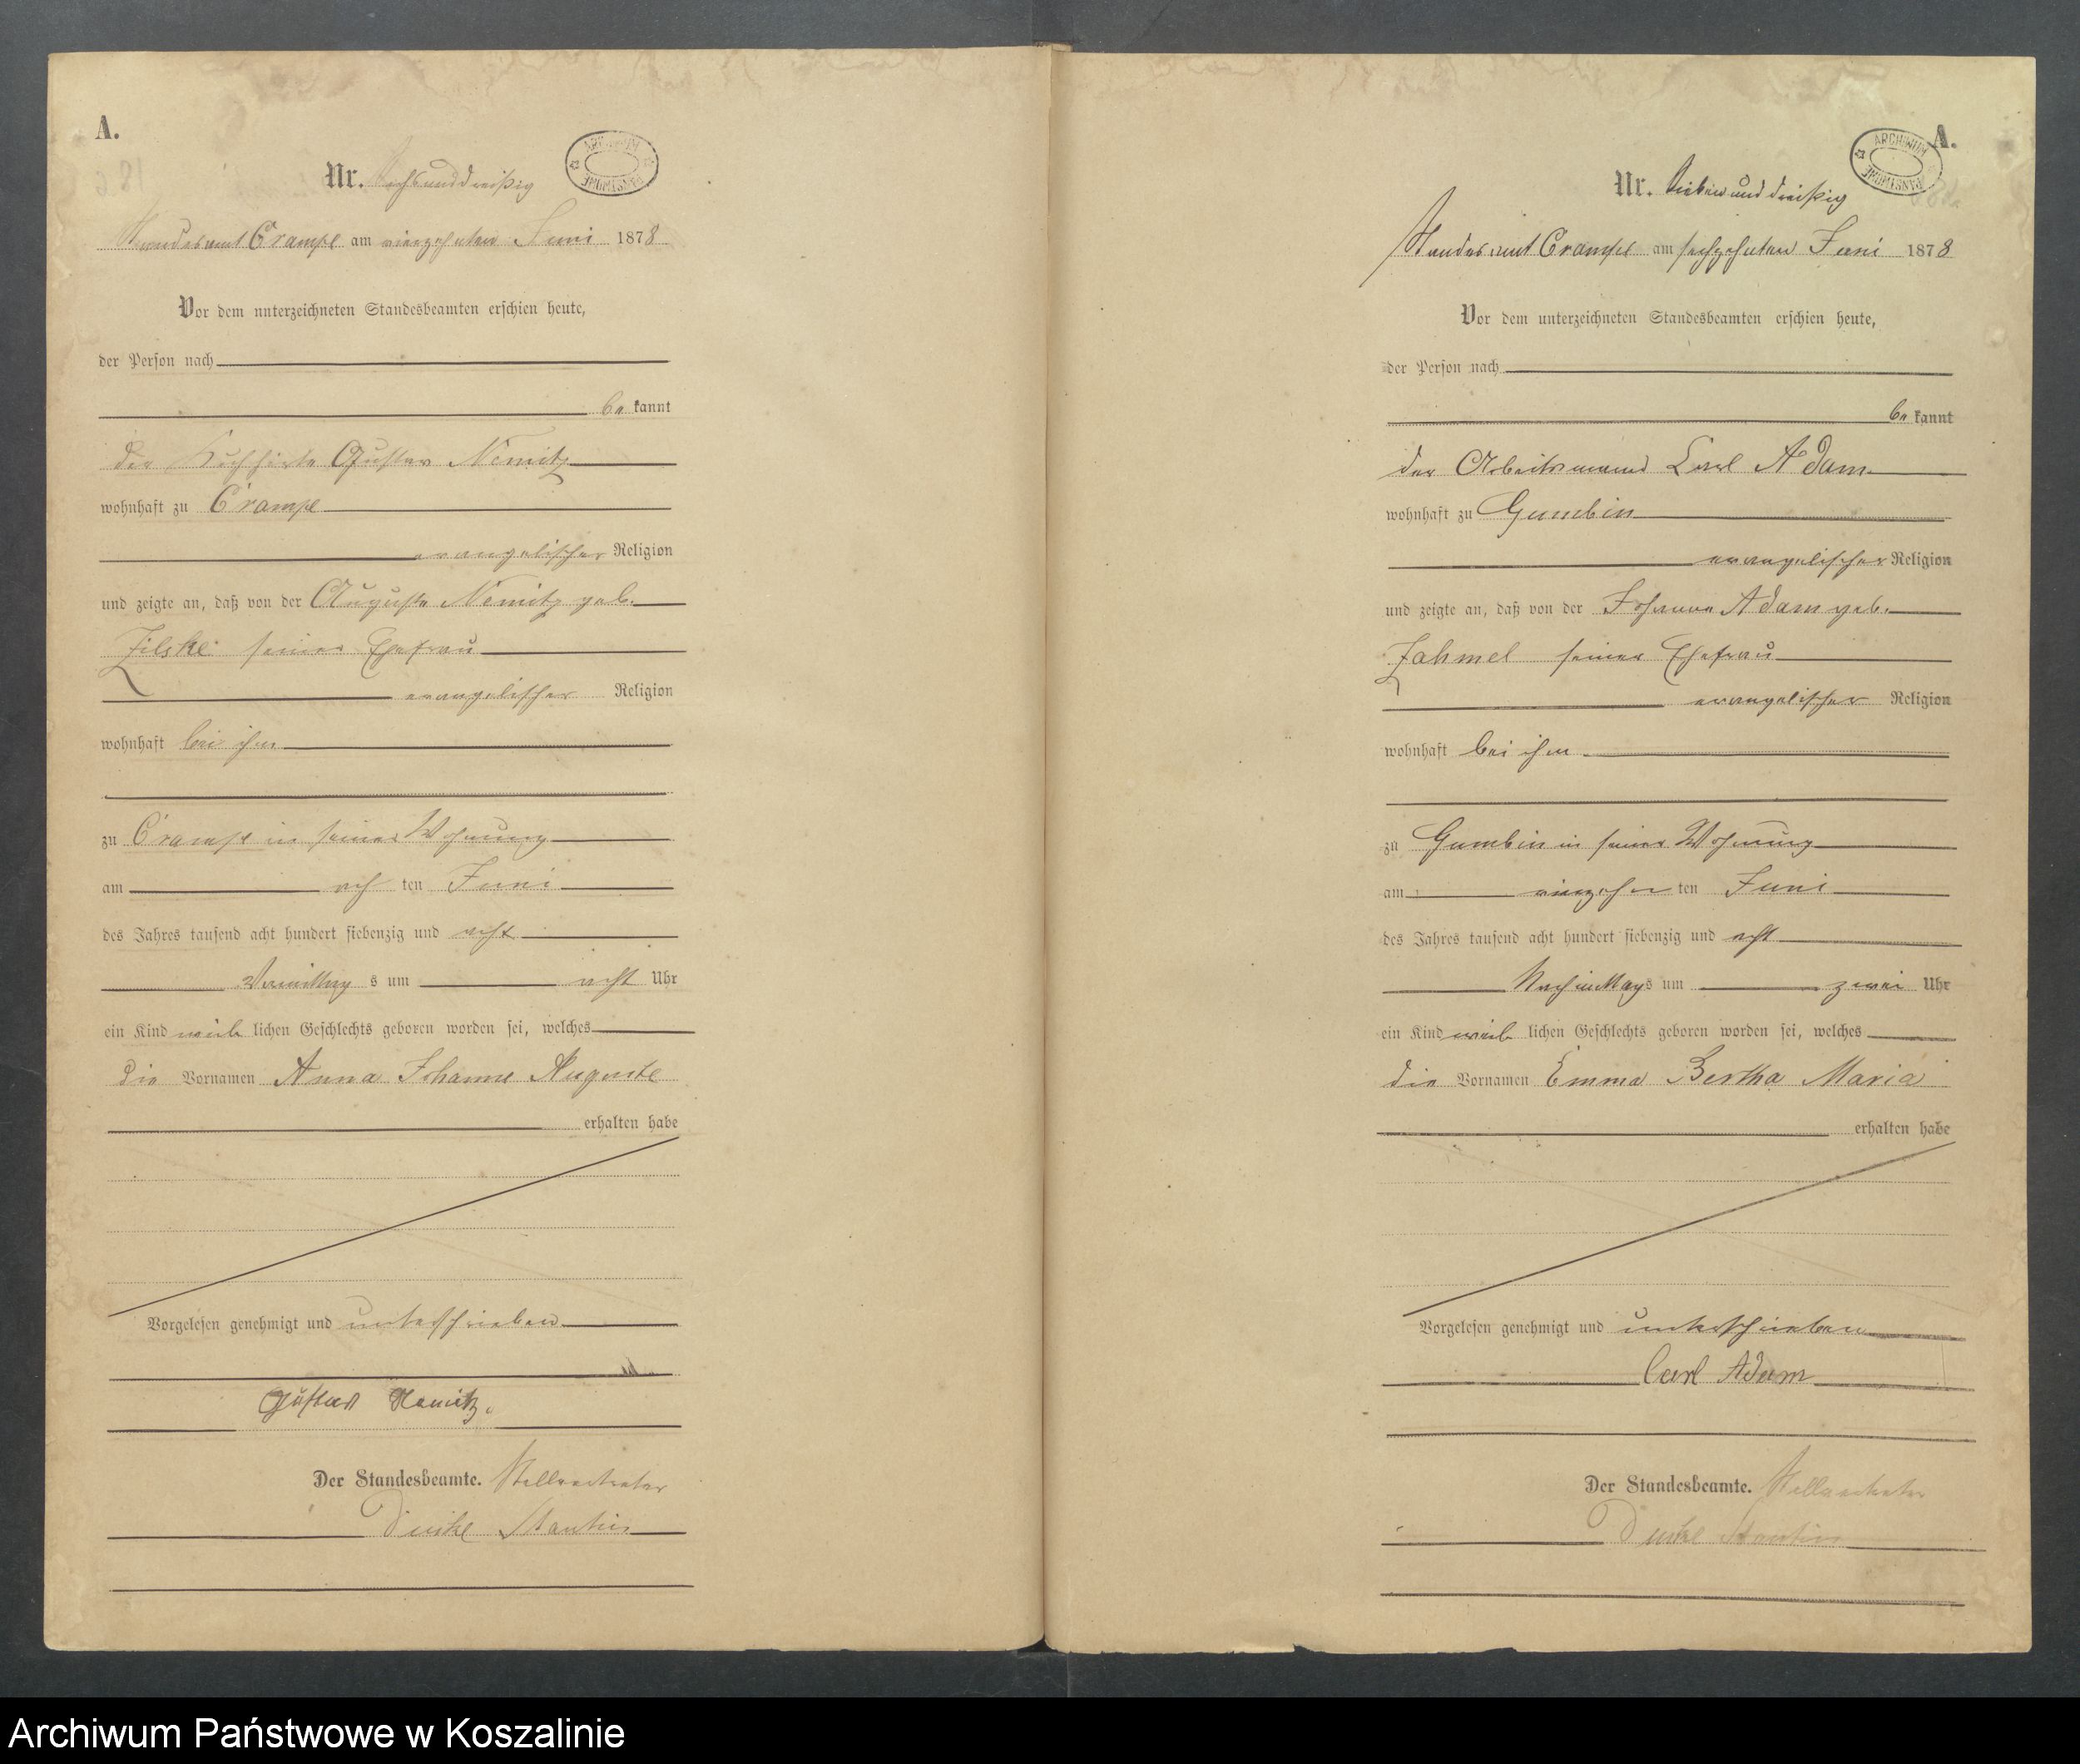 A.
Nr. Sechsunddreißig
ARCHIWUM PAŃSTWOWE
Standesamt Crampe am vierzehnten Juni 1878
Vor dem unterzeichneten Standesbeamten erschien heute,
der Person nach
be kannt
der Kuhhirte Gustav Nemitz
wohnhaft zu Crampe
evangelischer Religion
und zeigte an, daß von der Auguste Nemitz geb.
Zilske seiner Ehefrau
evangelischer Religion
wohnhaft bei ihm
zu Crampe in seiner Wohnung
am ach ten Juni
des Jahres tausend acht hundert siebenzig und acht
Vormittag s um acht Uhr
ein Kind weib lichen Geschlechts geboren worden sei, welches
die Vornamen Anna Johanne Auguste
erhalten habe
Vorgelesen genehmigt und unterschrieben
Gustav Nemitz.
Der Standesbeamte. Stellvertreter
A.
Nr. Siebenunddreißig
ARCHIWUM PAŃSTWOWE
Standesamt Crampe am sechzehnten Juni 1878
Vor dem unterzeichneten Standesbeamten erschien heute,
der Person nach
be kannt
der Arbeitsmann Carl Adam
wohnhaft zu Gumbin
evangelischer Religion
und zeigte an, daß von der Johanne Adam geb.
Zahmel seiner Ehefrau
evangelischer Religion
wohnhaft bei ihm
zu Gumbin in seiner Wohnung
am vierzehn ten Juni
des Jahres tausend acht hundert siebenzig und acht
Nachmittags um zwei Uhr
ein Kind weib lichen Geschlechts geboren worden sei, welches
die Vornamen Emma Bertha Maria
erhalten habe
Vorgelesen genehmigt und unterschrieben
Carl Adam
Der Standesbeamte. Stellvertreter
Archiwum Państwowe w Koszalinie